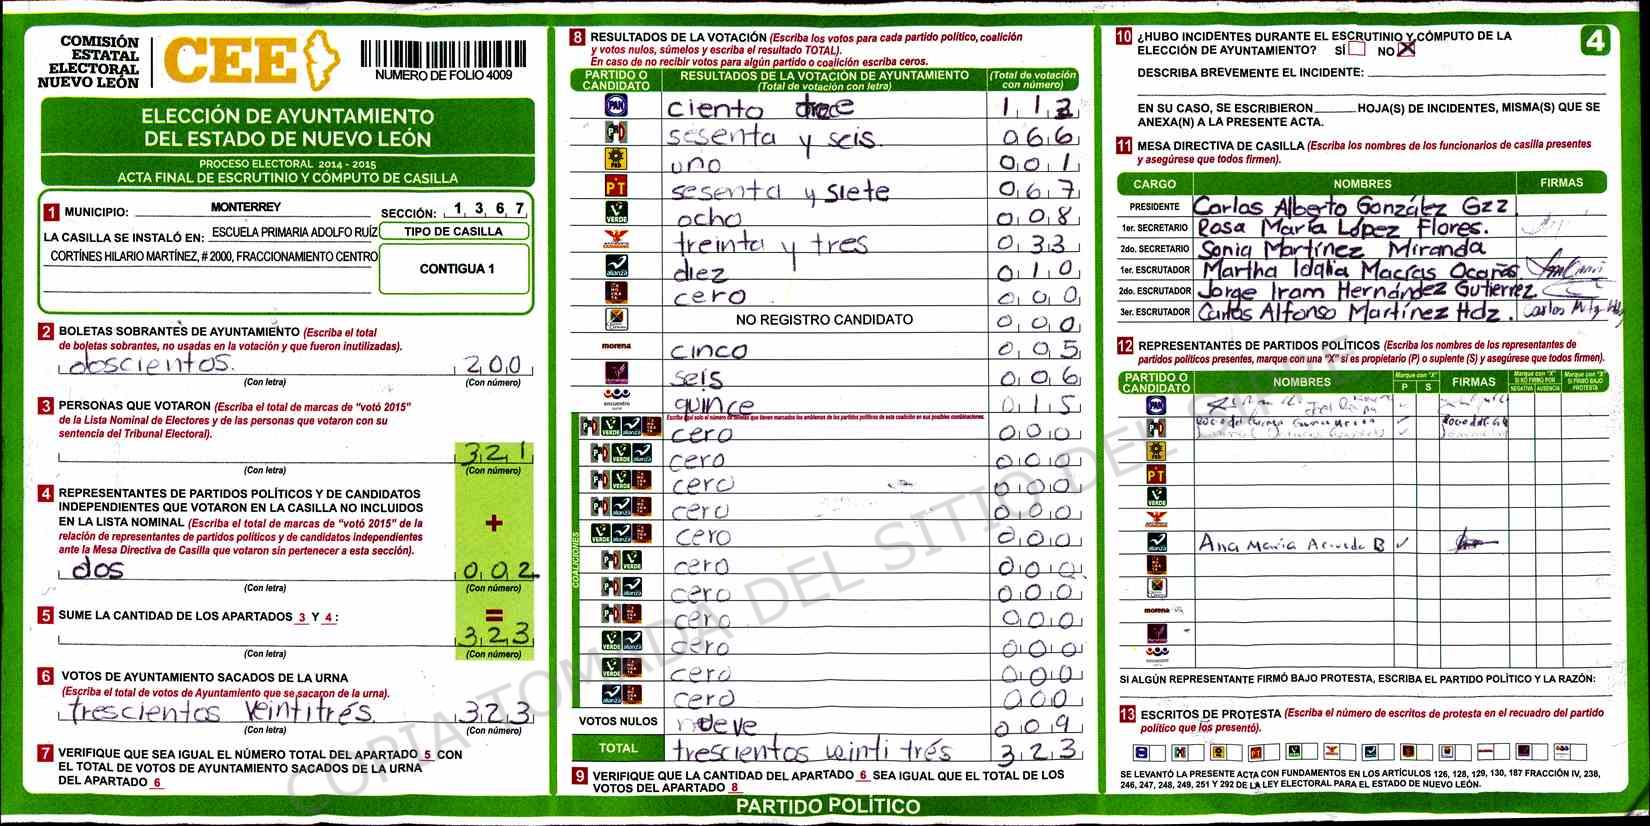 COMISIÓN
ESTATAL
ELECTORAL
NUEVO LEÓN
CEE
NUMERO DE FOLIO 4009
ELECCIÓN DE AYUNTAMIENTO
DEL ESTADO DE NUEVO LEÓN
PROCESO ELECTORAL 2014 - 2015
ACTA FINAL DE ESCRUTINIO Y CÓMPUTO DE CASILLA
1 MUNICIPIO: MONTERREY SECCIÓN: 1 3 6 7
LA CASILLA SE INSTALÓ EN: ESCUELA PRIMARIA ADOLFO RUÍZ
CORTÍNES HILARIO MARTÍNEZ, # 2000, FRACCIONAMIENTO CENTRO
TIPO DE CASILLA
CONTIGUA 1
2 BOLETAS SOBRANTES DE AYUNTAMIENTO (Escriba el total
de boletas sobrantes, no usadas en la votación y que fueron inutilizadas).
doscientos. 200
(Con letra) (Con número)
3 PERSONAS QUE VOTARON (Escriba el total de marcas de "votó 2015"
de la Lista Nominal de Electores y de las personas que votaron con su
sentencia del Tribunal Electoral).
321
(Con letra) (Con número)
4 REPRESENTANTES DE PARTIDOS POLÍTICOS Y DE CANDIDATOS
INDEPENDIENTES QUE VOTARON EN LA CASILLA NO INCLUIDOS
EN LA LISTA NOMINAL (Escriba el total de marcas de "votó 2015" de la
relación de representantes de partidos políticos y de candidatos independientes
ante la Mesa Directiva de Casilla que votaron sin pertenecer a esta sección).
+
dos 002
(Con letra) (Con número)
5 SUME LA CANTIDAD DE LOS APARTADOS 3 Y 4 :
=
323
(Con letra) (Con número)
6 VOTOS DE AYUNTAMIENTO SACADOS DE LA URNA
(Escriba el total de votos de Ayuntamiento que se sacaron de la urna).
trescientos veintitrés 323
(Con letra) (Con número)
7 VERIFIQUE QUE SEA IGUAL EL NÚMERO TOTAL DEL APARTADO 5 CON
EL TOTAL DE VOTOS DE AYUNTAMIENTO SACADOS DE LA URNA
DEL APARTADO 6
8 RESULTADOS DE LA VOTACIÓN (Escriba los votos para cada partido político, coalición
y votos nulos, súmelos y escriba el resultado TOTAL).
En caso de no recibir votos para algún partido o coalición escriba ceros.
PARTIDO O CANDIDATO RESULTADOS DE LA VOTACIÓN DE AYUNTAMIENTO (Total de votación con letra) (Total de votación con número)
PAN ciento trece 113
PRI sesenta y seis. 066
PRD uno 001
PT sesenta y siete 067
VERDE ocho 008
treinta y tres 033
alianza diez 010
cero 000
NO REGISTRO CANDIDATO 000
morena cinco 005
seis 006
encuentro quince 015
COALICIONES
Escriba aquí solo el número de boletas que tienen marcados los emblemas de los partidos políticos de esta coalición en sus posibles combinaciones.
PRI VERDE alianza cero 000
PRI VERDE alianza cero 000
PRI VERDE cero 000
PRI alianza cero 000
VERDE alianza cero 000
PRI VERDE cero 000
PRI alianza cero 000
PRI cero 000
VERDE alianza cero 000
VERDE cero 000
alianza cero 000
VOTOS NULOS nueve 009
TOTAL trescientos veinti trés 323
9 VERIFIQUE QUE LA CANTIDAD DEL APARTADO 6 SEA IGUAL QUE EL TOTAL DE LOS
VOTOS DEL APARTADO 8
PARTIDO POLÍTICO
4
10 ¿HUBO INCIDENTES DURANTE EL ESCRUTINIO Y CÓMPUTO DE LA
ELECCIÓN DE AYUNTAMIENTO? SÍ NO X
DESCRIBA BREVEMENTE EL INCIDENTE:
EN SU CASO, SE ESCRIBIERON HOJA(S) DE INCIDENTES, MISMA(S) QUE SE
ANEXA(N) A LA PRESENTE ACTA.
11 MESA DIRECTIVA DE CASILLA (Escriba los nombres de los funcionarios de casilla presentes
y asegúrese que todos firmen).
CARGO NOMBRES FIRMAS
PRESIDENTE Carlos Alberto González Gzz
1er. SECRETARIO Rosa María López Flores.
2do. SECRETARIO Sonia Martínez Miranda
1er. ESCRUTADOR Martha Idalia Macías Ocañas.
2do. ESCRUTADOR Jorge Iram Hernández Gutierrez
3er. ESCRUTADOR Carlos Alfonso Martínez Hdz. Carlos
12 REPRESENTANTES DE PARTIDOS POLÍTICOS (Escriba los nombres de los representantes de
partidos políticos presentes, marque con una "X" si es propietario (P) o suplente (S) y asegúrese que todos firmen).
PARTIDO O CANDIDATO NOMBRES Marque con "X" P S FIRMAS Marque con "X" SI NO FIRMÓ POR NEGATIVA AUSENCIA Marque con "X" SI FIRMÓ BAJO PROTESTA
PAN
PRI
PRD
PT
VERDE
alianza Ana María B ✓
morena
SI ALGÚN REPRESENTANTE FIRMÓ BAJO PROTESTA, ESCRIBA EL PARTIDO POLÍTICO Y LA RAZÓN:
13 ESCRITOS DE PROTESTA (Escriba el número de escritos de protesta en el recuadro del partido
político que los presentó).
SE LEVANTÓ LA PRESENTE ACTA CON FUNDAMENTOS EN LOS ARTÍCULOS 126, 128, 129, 130, 187 FRACCIÓN IV, 238,
246, 247, 248, 249, 251 Y 292 DE LA LEY ELECTORAL PARA EL ESTADO DE NUEVO LEÓN.
COPIA TOMADA DEL SITIO DEL SIPRE